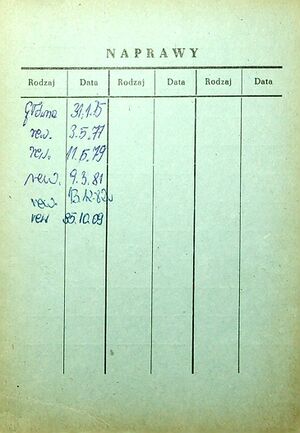 NAPRAWY
Rodzaj Data Rodzaj Data Rodzaj Data
główna 31.1.75
rew. 3.5.77
rew. 11.5.79
rew. 9.3.81
rew. 13.12.82
rew 85.10.09